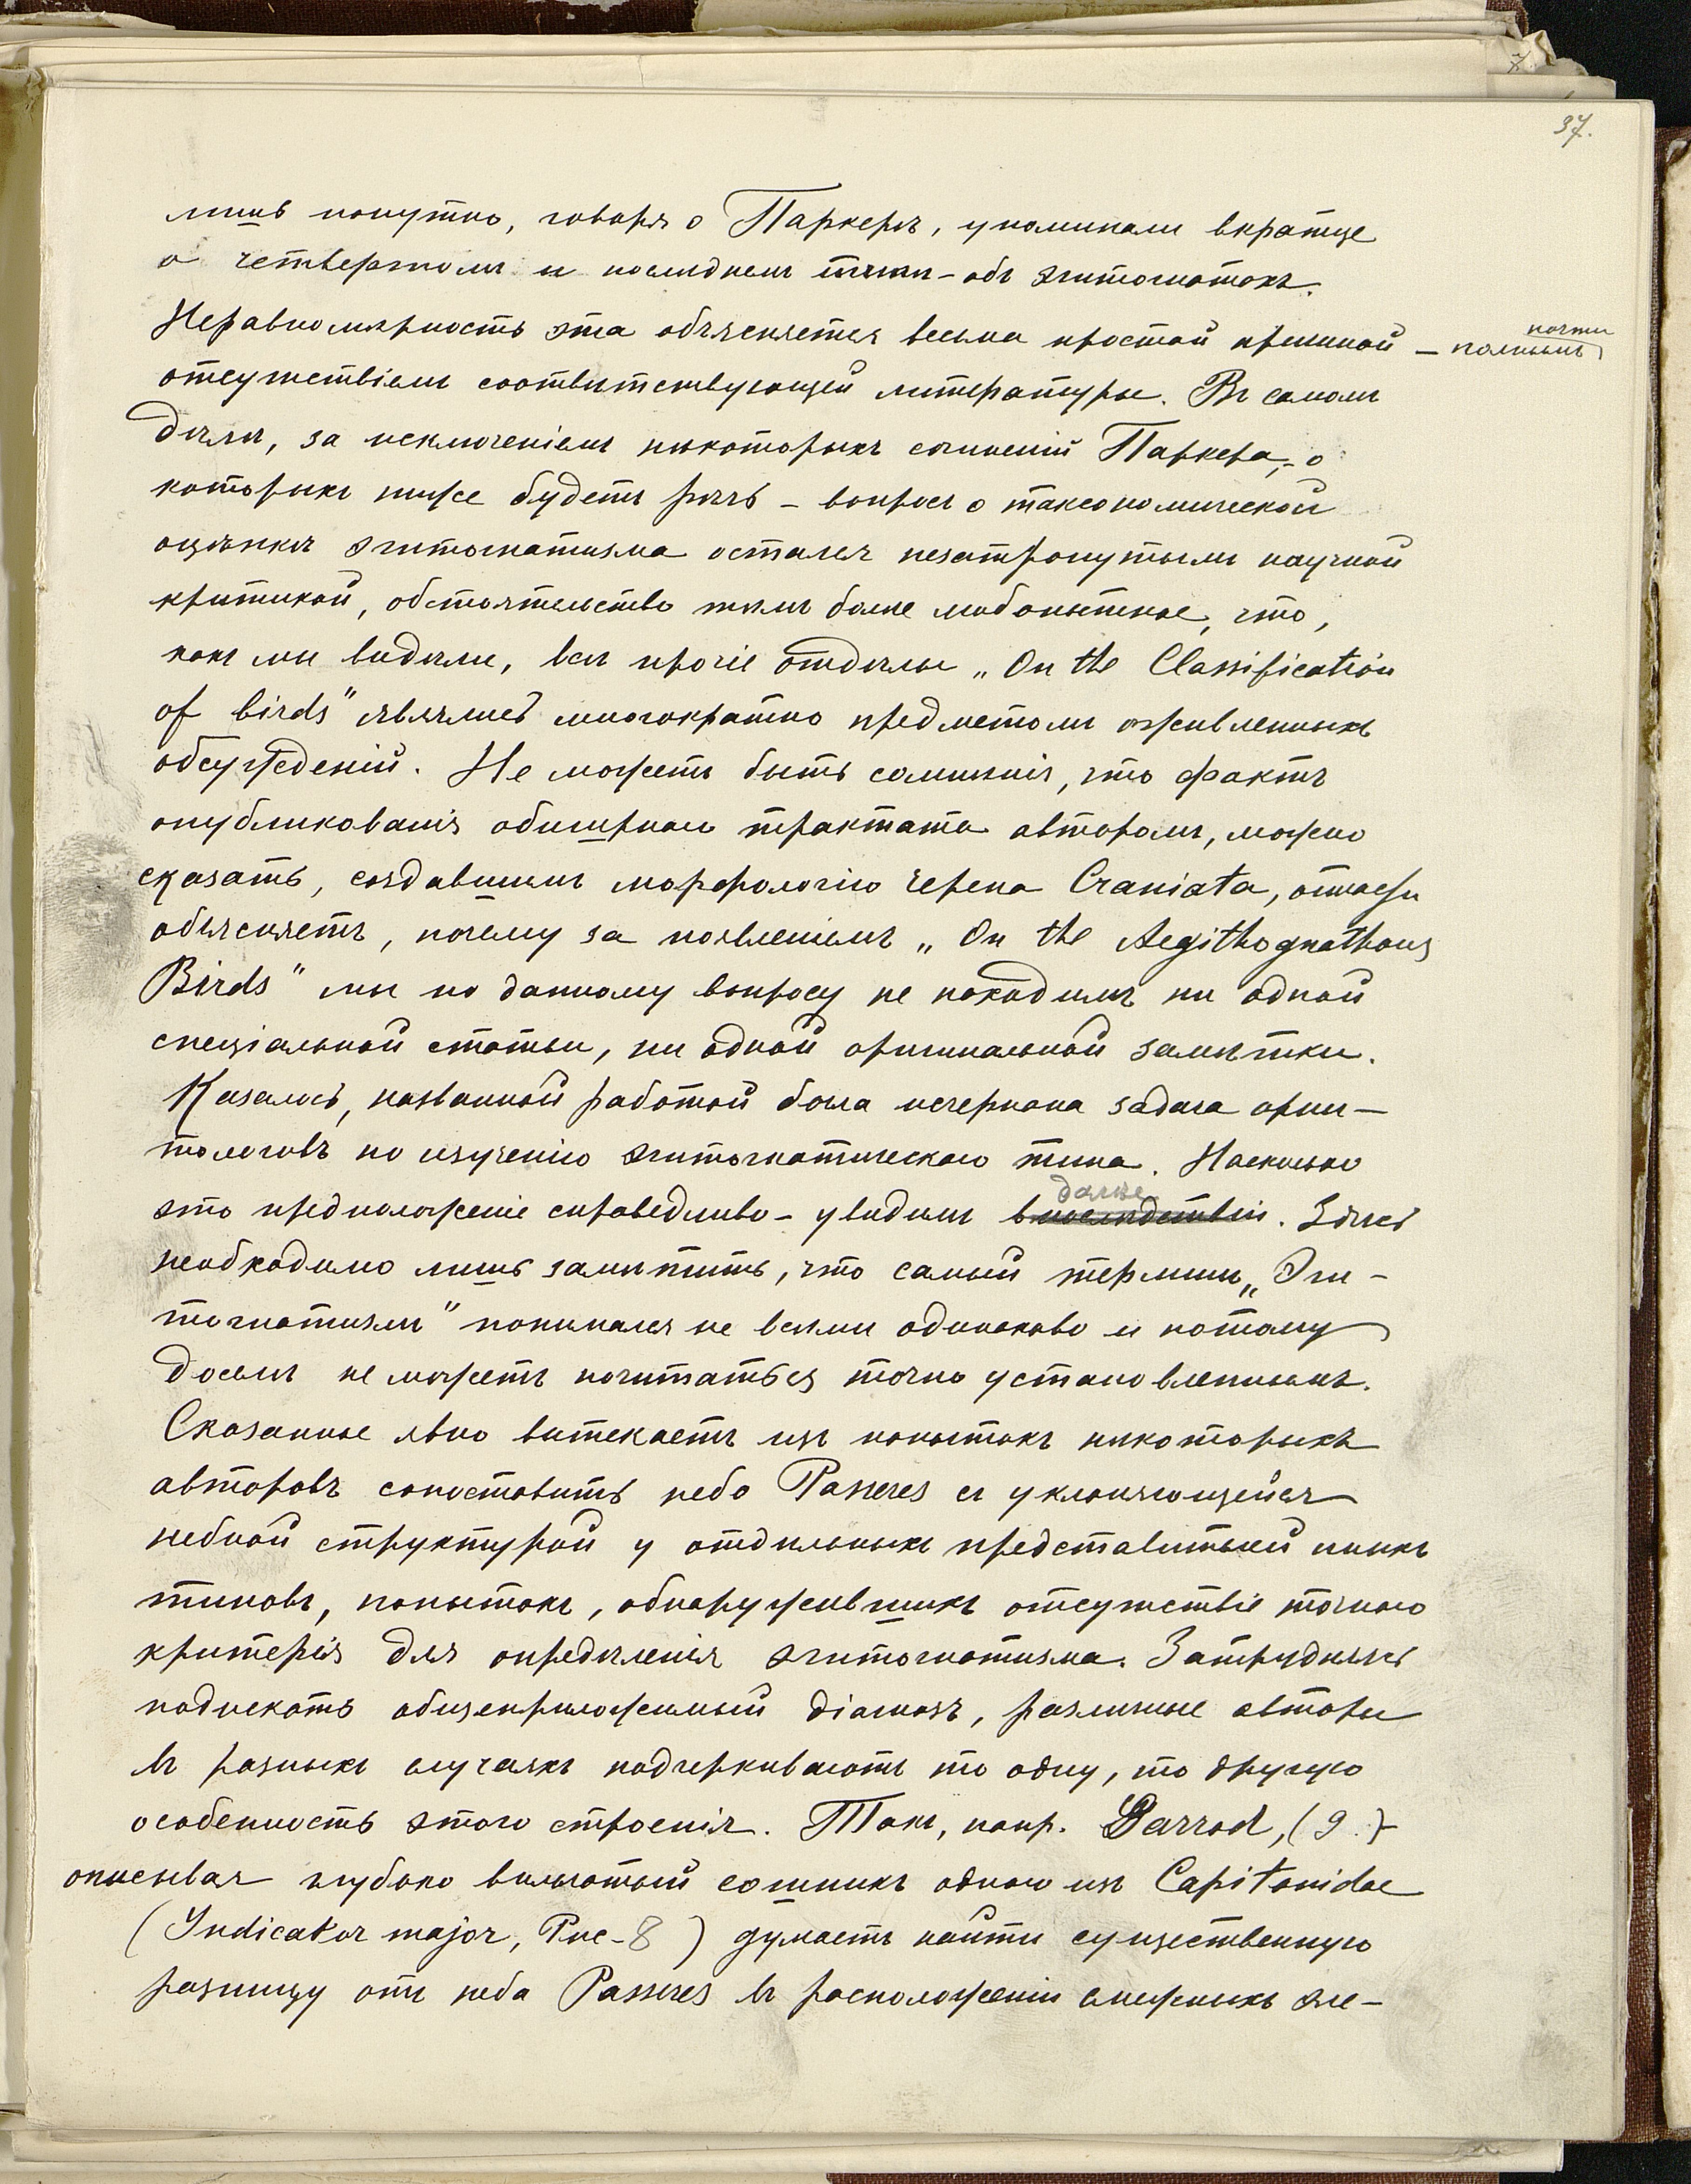 37.
лишь попутно, говоря о Паркерѣ, упоминали вкратце
о четвертомъ и послѣднемъ типѣ – объ эгитогнатахъ.
Неравномѣрность эта объясняется весьма простой причиной – почти полнымъ
отсутствіемъ соотвѣтствующей литературы. Въ самомъ
дѣлѣ, за исключеніемъ нѣкоторыхъ сочиненій Паркера, – о
которыхъ ниже будетъ рѣчь – вопросъ о таксономической
оцѣнкѣ эгитогнатизма остался незатронутымъ научной
критикой, обстоятельство тѣмъ более любопытное, что,
какъ мы видѣли, всѣ прочіе отдѣлы „On the Classification
of birds" являлись многократно предметомъ оживленныхъ
обсужденій. Не можетъ быть сомнѣнія, что фактъ
опубликованія обширнаго трактата авторомъ, можно
сказать, создавшимъ морфологію черепа Craniata, отчасти
объясняетъ, почему за появленіемъ „On the Aegithognathous
Birds" мы по данному вопросу не находимъ ни одной
спеціальной статьи, ни одной оригинальной замѣтки.
Казалось, названной работой была исчерпана задача орни–
тологовъ по изученію эгитогнатическаго типа. Насколько
это предположеніе справедливо – увидимъ впослѣдствіи далѣе. Здѣсь
необходимо лишь замѣтить, что самый терминъ „Эги–
тогнатизмъ" понимался не всѣми одинаково и потому
доселѣ не можетъ почитаться точно установленнымъ.
Сказанное явно вытекаетъ изъ попытокъ нѣкоторыхъ
авторовъ сопоставить небо Passeres съ уклоняющейся
небной структурой у отдѣльныхъ представителей иныхъ
типовъ, попытокъ, обнаружившихъ отсутствіе точнаго
критерія для опредѣленія эгитогнатизма. Затрудняясь
подыскать общеприложимый діагнозъ, различные авторы
въ разныхъ случаяхъ подчеркиваютъ то одну, то другую
особенность этого строенія. Такъ, напр. Garrod, (9.)
описывая глубоко вильчатый сошникъ одного изъ Capitonidae
(Indicator major, Рис – 8) думаетъ найти существенную
разницу отъ неба Passeres въ расположеніи смежныхъ эле–